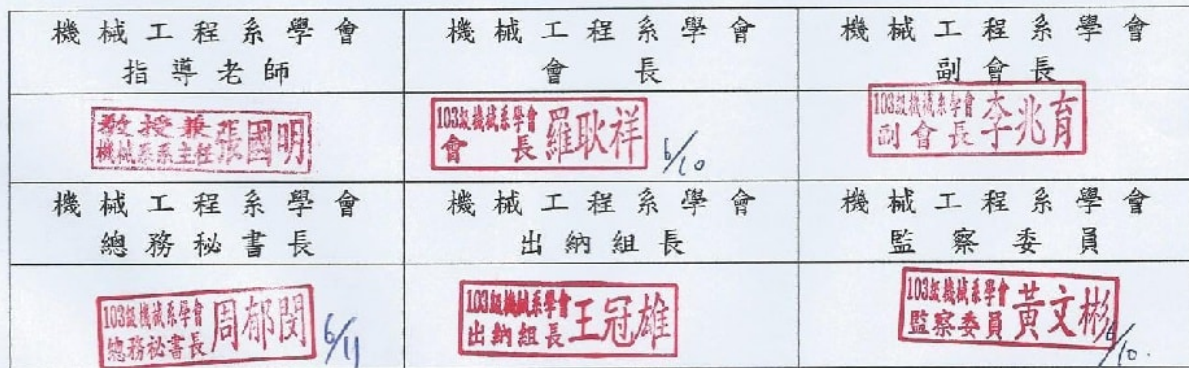 機械工程系學會
指導老師
機械工程系學會
會長
機械工程系學會
副會長
教授兼
機械系系主任
張國明
103級機械系學會
會長
羅耿祥
6/10
103級機械系學會
副會長
李兆育
機械工程系學會
總務秘書長
機械工程系學會
出納組長
機械工程系學會
監察委員
103級機械系學會
總務祕書長
周郁閔
6/11
103級機械系學會
出納組長
王冠雄
103級機械系學會
監察委員
黃文彬
6/10.